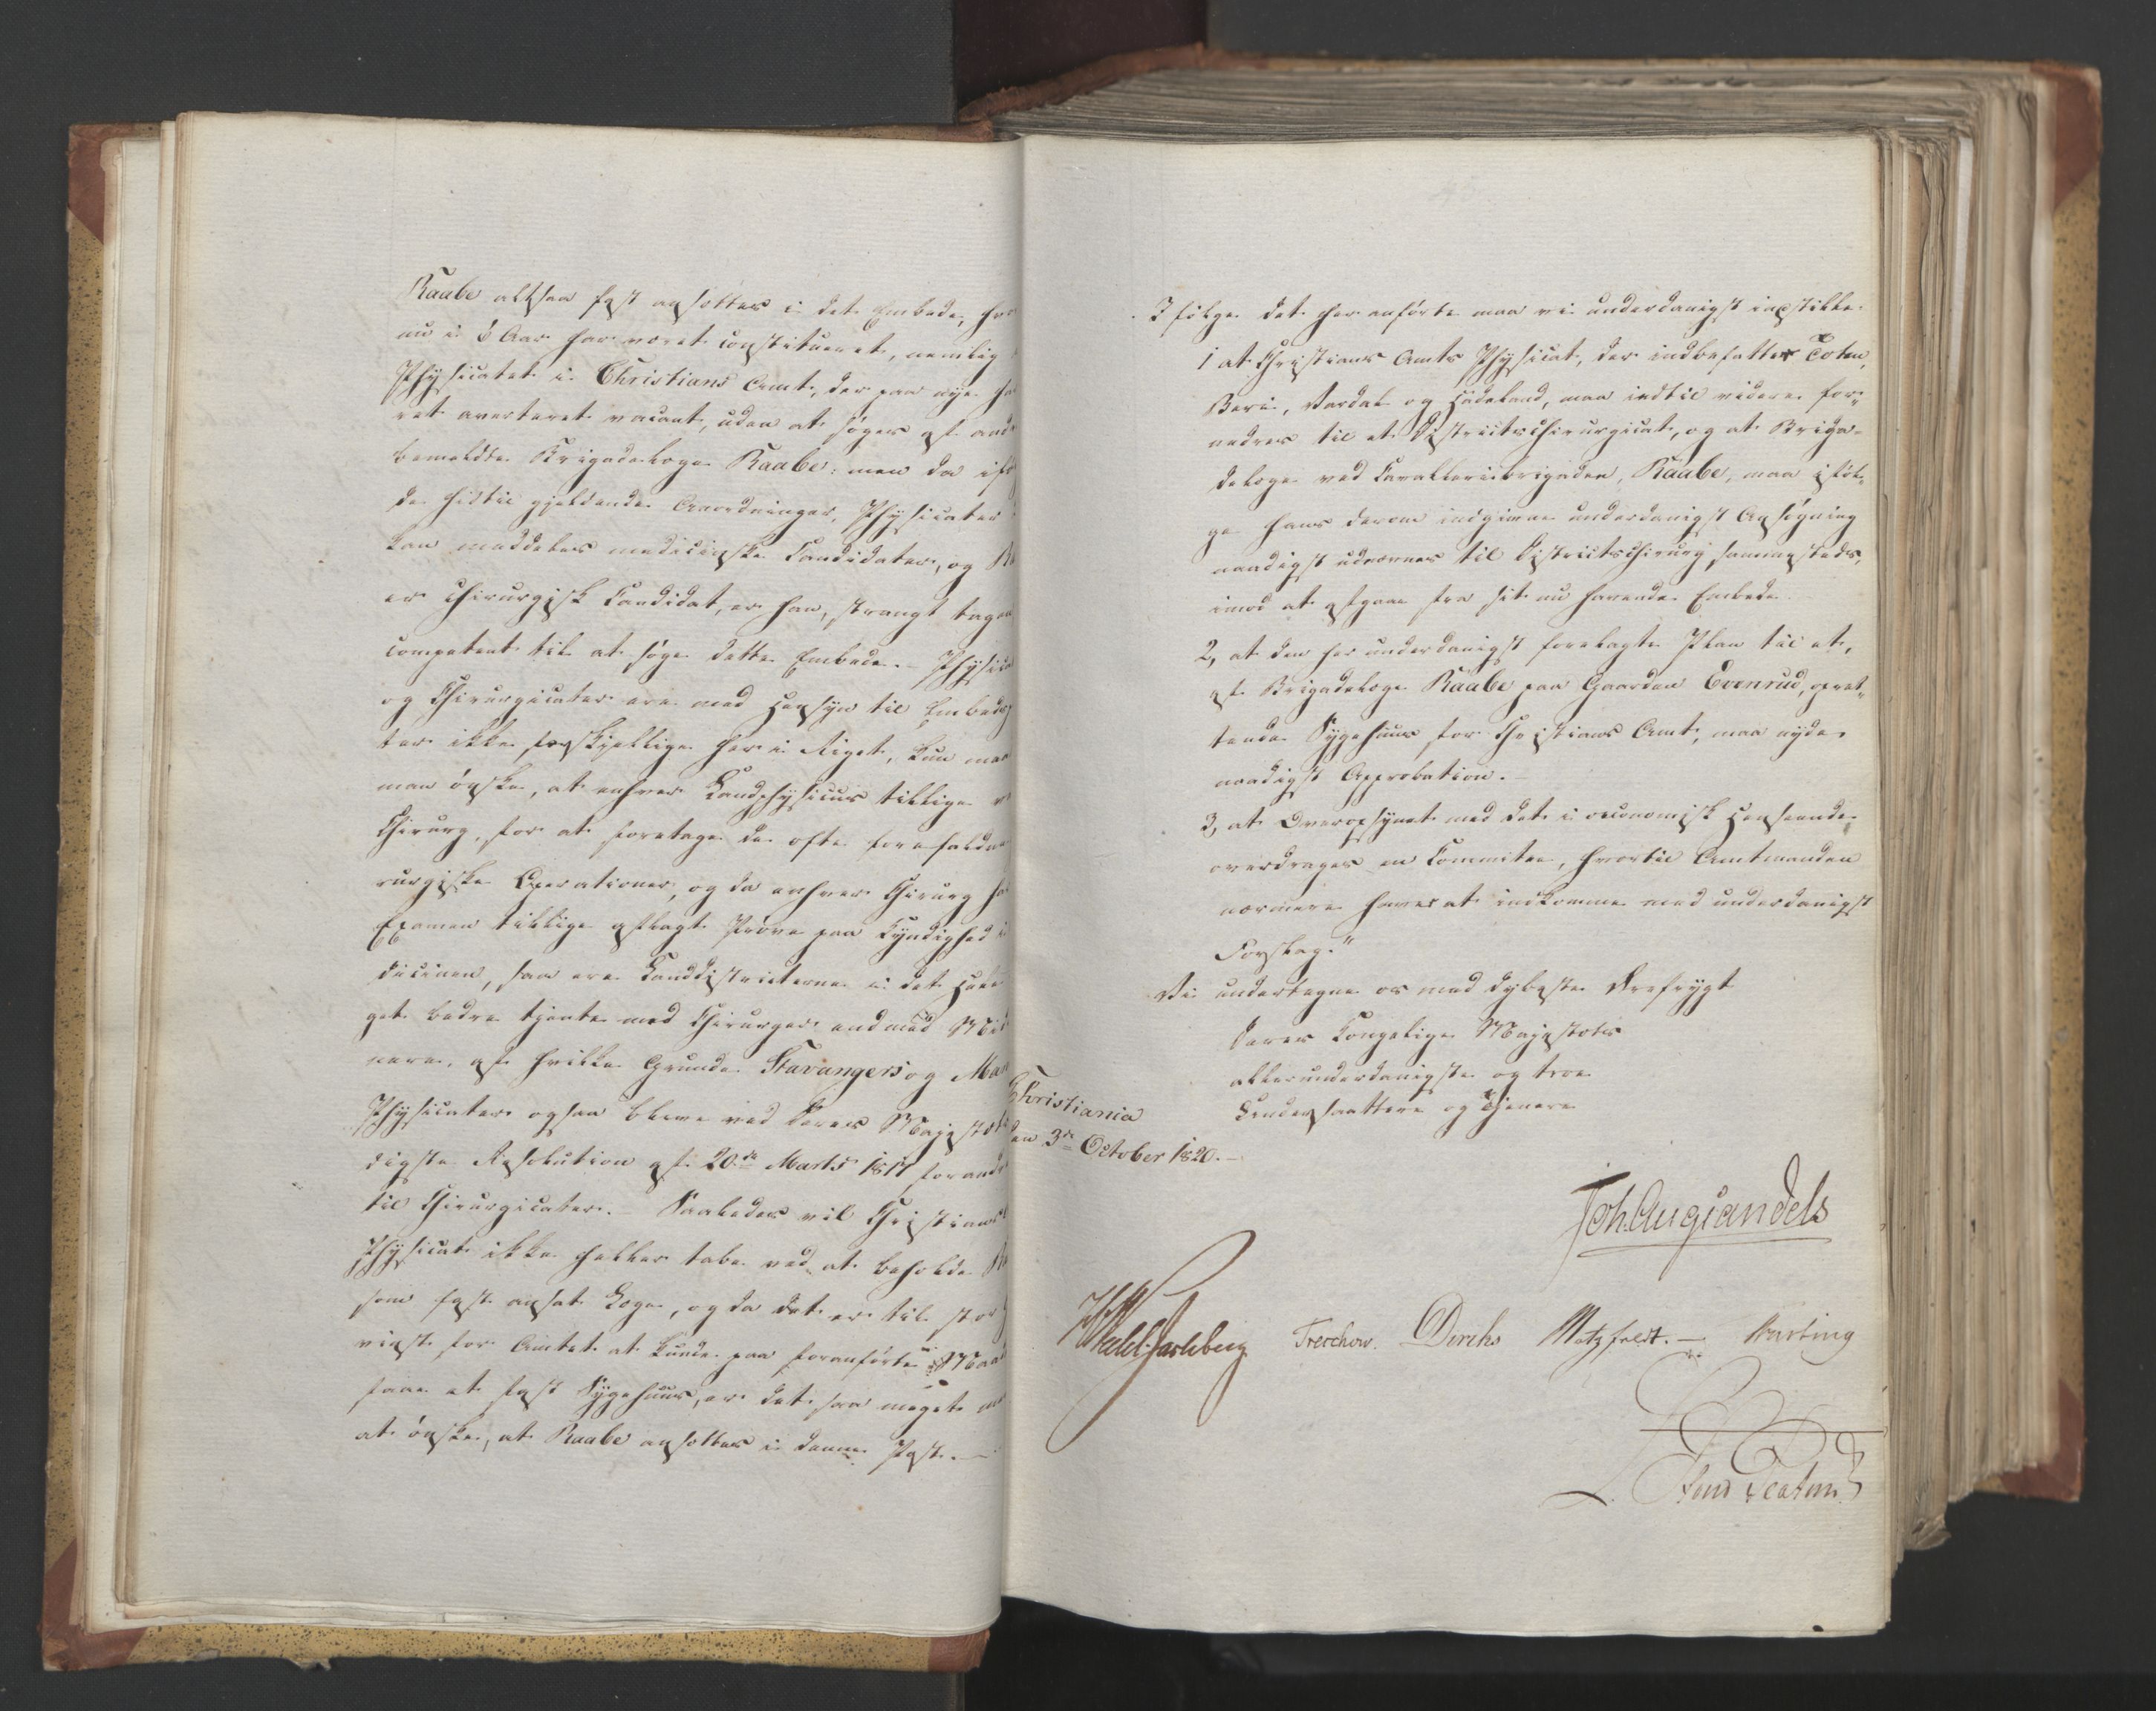 Raabe altsaa fast ansættes i det Embede, hvor
nu i 6 Aar har været constitueret, nemlig
Physicatet i Christians Amt, der paa nye ha
ret averteret vacant, uden at søges af andr
bemeldte Brigadelæge Raabe: men da ifø
de hidtil gjeldende Anordninger, Physicater
kan meddeles medicinske Candidater, og R
er chirurgisk Candidat, er han, strængt tagen
competent til at søge dette Embede. - Physica
og Chirurgicater ere med Hensyn til Embeds
ter ikke forskjellige her i Riget, kun maa
man ønske, at enhver Landphysicus tillige v
Chirurg, for at foretage de ofte forefaldne
rurgiske Operationer, og da enhver Chirurg ha
Examen tillige aflagt Prøve paa Kyndighed i
dicinen, saa ere Landdistricterne i det Hele
get bedre tjente med Chirurger end med Med
nere, af hvilke Grunde Stavangers og Man
Physicater ogsaa bleve ved Deres Majestæts
digste Resolution af 20de Marts 1817 forandr
til Chirurgicater. - Saaledes vil Christians
Physicat ikke heller tabe ved at beholde R
som fast ansat Læge, og da det er til stor
vinst for Amtet at kunde paa foranførte Maa
faae et fast Sygehuus, er det saa meget me
at ønske, at Raabe ansættes i denne Post. -
Ifølge det her anførte maa vi underdanigst indstille:
1 at Christians Amts Physicat, der indbefatter Toten,
Beri, Vardal og Hadeland, maa indtil videre for„
andres til et Districtschirurgicat, og at Briga-
delæge ved Cavalleribrigaden, Raabe, maa iføl„
ge hans derom indgivne underdanigst Ansøgning
naadigst udnævnes til Districtschirurg sammesteds,
imod at afgaae fra sit nu havende Embede.
2, at den her underdanigst forelagte Plan til et,
af Brigadelæge Raabe paa Gaarden Evenrud, opret„
tende Sygehuus for Christians Amt, maa nyde
naadigst Approbation. -
3, at Overopsynet med det i oeconomisk Henseende
overdrages en Committee, hvortil Amtmanden
nærmere haver at indkomme med underdanigst
Forslag."
Vi undertegne os med dybeste Ærefrygt
Deres Kongelige Majestæts
allerunderdanigste og troe
Undersaattere og Tjenere
Christiania
den 3de October 1820. -
Joh. Aug. Sandels
HWedel Jarlsberg Treschow. Diriks Motzfeldt. - Krefting